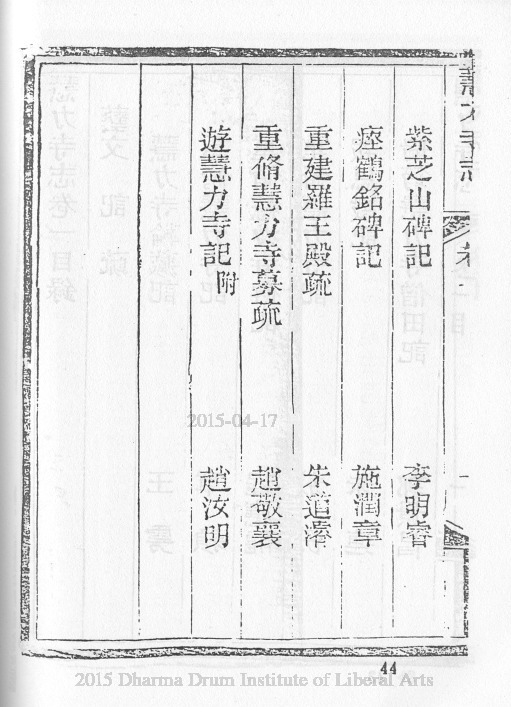 慧力寺志 卷一
紫芝山碑記 李明睿
瘞鶴銘碑記 施潤章
重建羅王殿疏 朱道濬
重脩慧力寺募疏 趙敬襄
遊慧力寺記附 趙汝明
2015-04-17
44
2015 Dharma Drum Institute of Liberal Arts